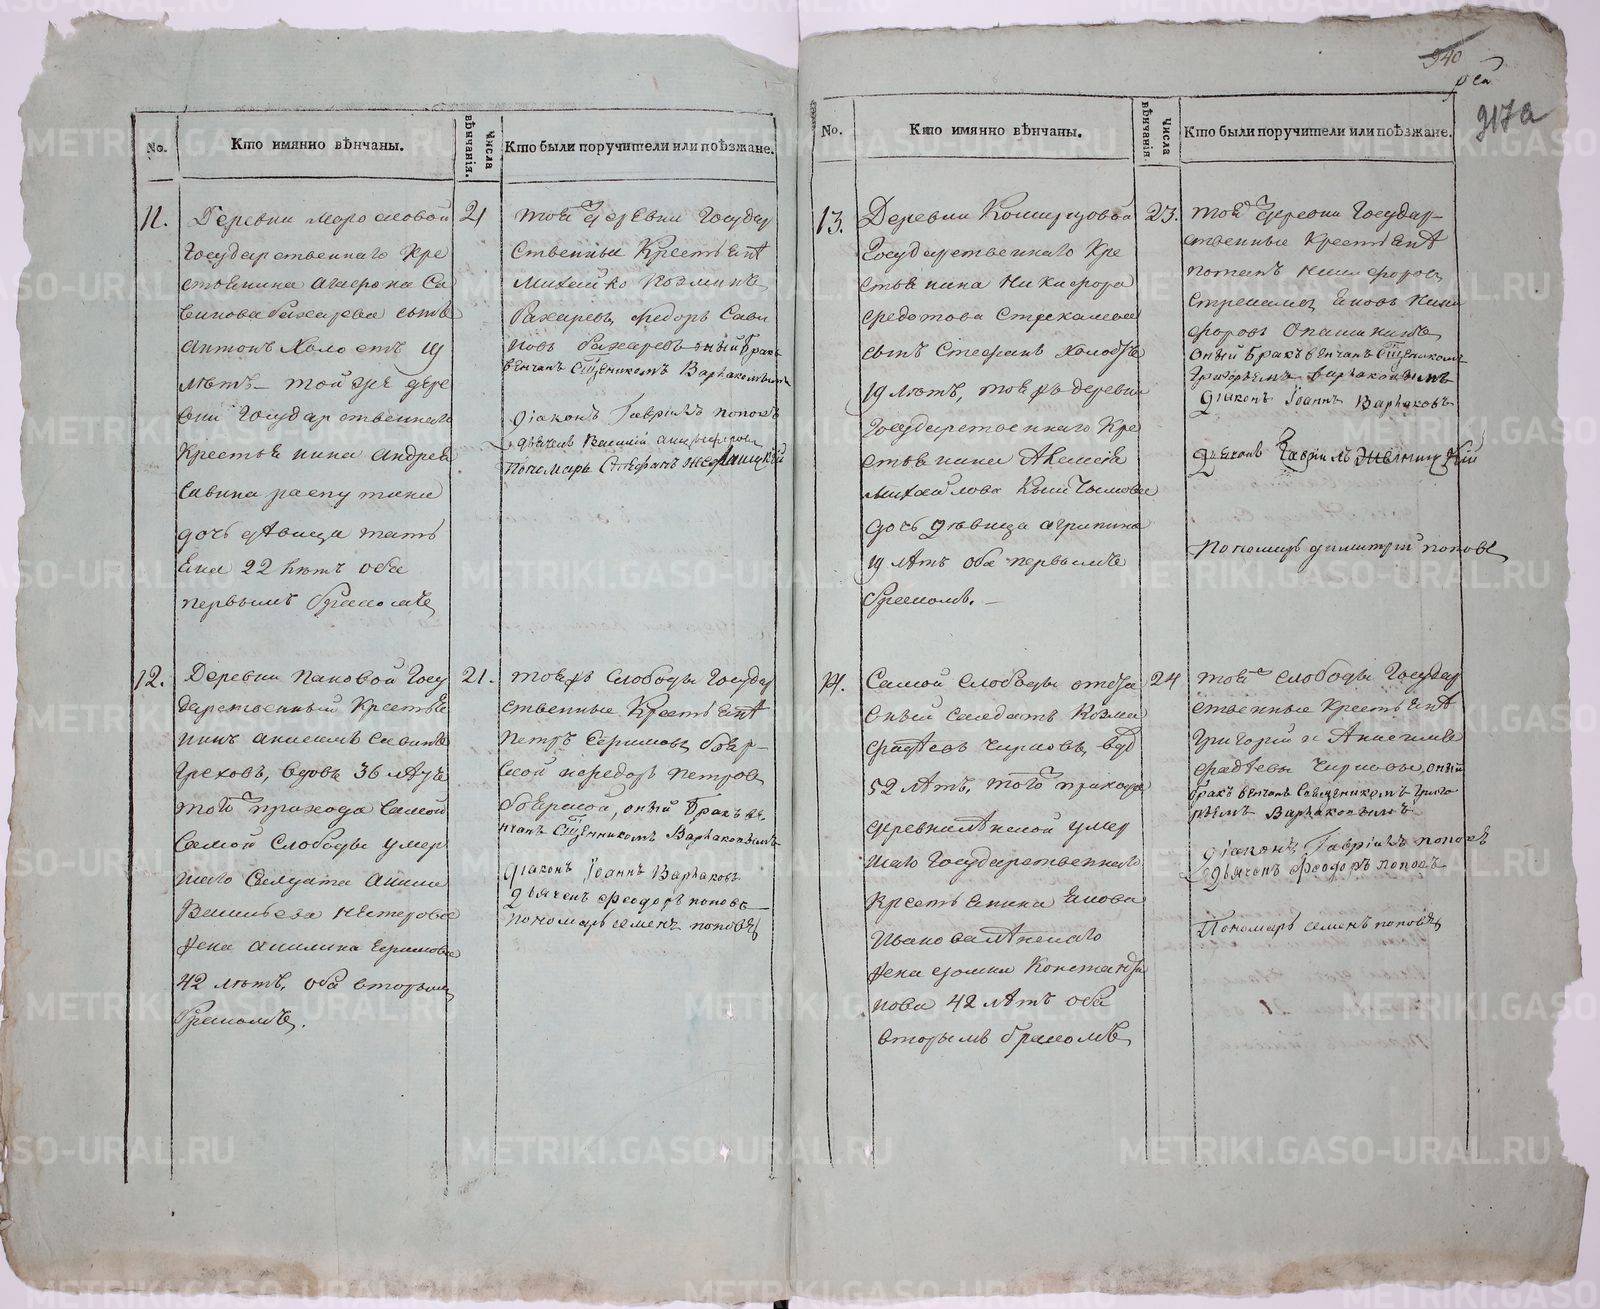 No.
Кто имянно вѣнчаны.
Числа вѣнчанія.
Кто были поручители или поѣзжане.
11.
Деревни
Государственнаго Кре
стьянина Агафона Са
винова сынъ
Антонъ Холостъ 19
лѣтъ – той же дере
вни Государственнаго
Крестьянина Андрея
Савина распутина
дочь дѣвица тать
яна 22 лѣтъ оба
первымъ бракомъ
21
тояжъ деревни Государ
ственныя Крестьяна
Михайло Козминъ
Ѳедоръ Сави
новъ оный бракъ
вѣнчанъ Сщенникомъ Варлаковымъ
діаконъ Гавріилъ поповъ
дьячекъ Василій
Пономарь Стефанъ
12.
Деревни Пановой Госу
дарственный Крестья
нинъ Анисимъ Савинъ
Греховъ, вдовъ 36 лѣтъ
того прихода Самой
Самой Слободы умер
шаго Солдата
Васильева Нестерова
жена акилина Ефимова
42 лѣтъ, оба вторымъ
бракомъ.
21.
тояжъ Слободы Государ
ственные Крестьяна
Петръ Ефимовъ
Петровъ
оный бракъ вѣ
нчанъ Сщенникомъ Варлаковымъ
діаконъ Іоаннъ Варлаковъ
дьячекъ феодоръ поповъ
пономарь семенъ поповъ
940
917а
No.
Кто имянно вѣнчаны.
Числа вѣнчанія
Кто были поручители или поѣзжане.
13.
Деревни
Государственнаго Кре
стьянина Никифора
федотова
сынъ Стефанъ Холостъ
19 лѣтъ, тояжъ деревни
Государственнаго Кре
стьянина
михайлова
дочь дѣвица агрипина
19 лѣтъ оба первымъ
бракомъ. –
23.
тояжъ деревни Государ–
ственные Крестьяна
потапъ никифоровъ
Яковъ Ники
форовъ
оный бракъ вѣнчанъ Сщенникомъ
Григорьемъ Варлаковымъ
діаконъ Іоаннъ Варлаковъ
Дьячекъ Гавріилъ
Пономарь димитрій поповъ
14.
Самой слободы отста
вный солдатъ Козма
фадѣевъ Чирковъ, вдовъ
52 лѣтъ, того прихода
деревни умер
шаго Государственнаго
Крестьянина Якова
Иванова
жена домна Константи
нова 42 лѣтъ оба
вторымъ бракомъ
24
тояжъ слободы Государ
ственные Крестьяна
Григорій и Анисимъ
фадѣевы Чирковы, оный
бракъ вѣнчанъ Священникомъ Григо
рьемъ Варлаковымъ
діаконъ Гавріилъ поповъ
дьячекъ феодоръ поповъ
Пономарь семенъ поповъ
METRIKI.GASO-URAL.RU